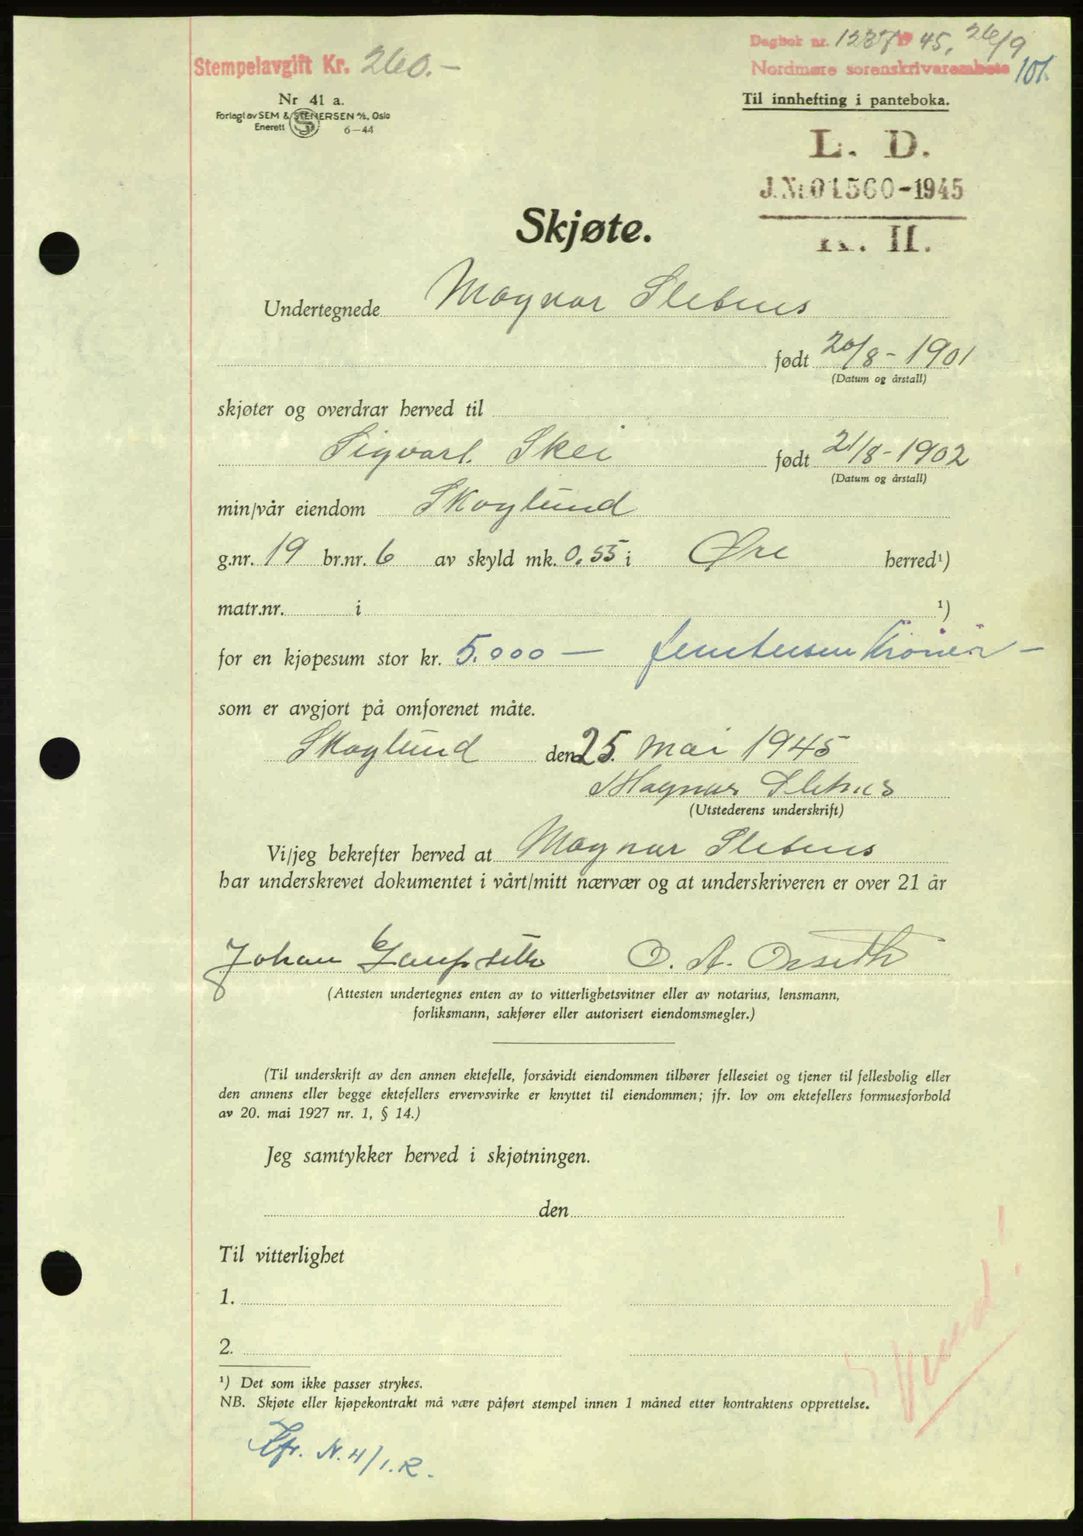 Dagbok nr. 1237 45, 26/9
Stempelavgift Kr. 260.-
Nordmøre sorenskrivarembete 101.
Nr 41 a.
Til innhefting i panteboka.
Forlagt av SEM & STENERSEN A/S, Oslo
Enerett S 6-44
L. D.
J.Nr. 01560-1945
Skjøte.
R. II.
Undertegnede Magnar Sletnes
født 20/8-1901
(Datum og årstall)
skjøter og overdrar herved til
Sigvart Skei født 21/8-1902
(Datum og årstall)
min/vår eiendom Skoglund
g.nr. 19 br.nr. 6 av skyld mk. 0.55 i Øre herred¹)
matr.nr. i ¹)
for en kjøpesum stor kr. 5.000 — femtusen Kroner —
som er avgjort på omforenet måte.
Skoglund den 25. mai 1945
Magnar Sletnes
(Utstederens underskrift)
Vi/jeg bekrefter herved at Magnar Sletnes
har underskrevet dokumentet i vårt/mitt nærvær og at underskriveren er over 21 år
Johan O. A. Orseth
(Attesten undertegnes enten av to vitterlighetsvitner eller av notarius, lensmann,
forliksmann, sakfører eller autorisert eiendomsmegler.)
(Til underskrift av den annen ektefelle, forsåvidt eiendommen tilhører felleseiet og tjener til fellesbolig eller
den annens eller begge ektefellers ervervsvirke er knyttet til eiendommen; jfr. lov om ektefellers formuesforhold
av 20. mai 1927 nr. 1, § 14.)
Jeg samtykker herved i skjøtningen.
den
Til vitterlighet
1.
2.
¹) Det som ikke passer strykes.
NB. Skjøte eller kjøpekontrakt må være påført stempel innen 1 måned etter kontraktens opprettelse.
Jfr. N. 4/1. R.